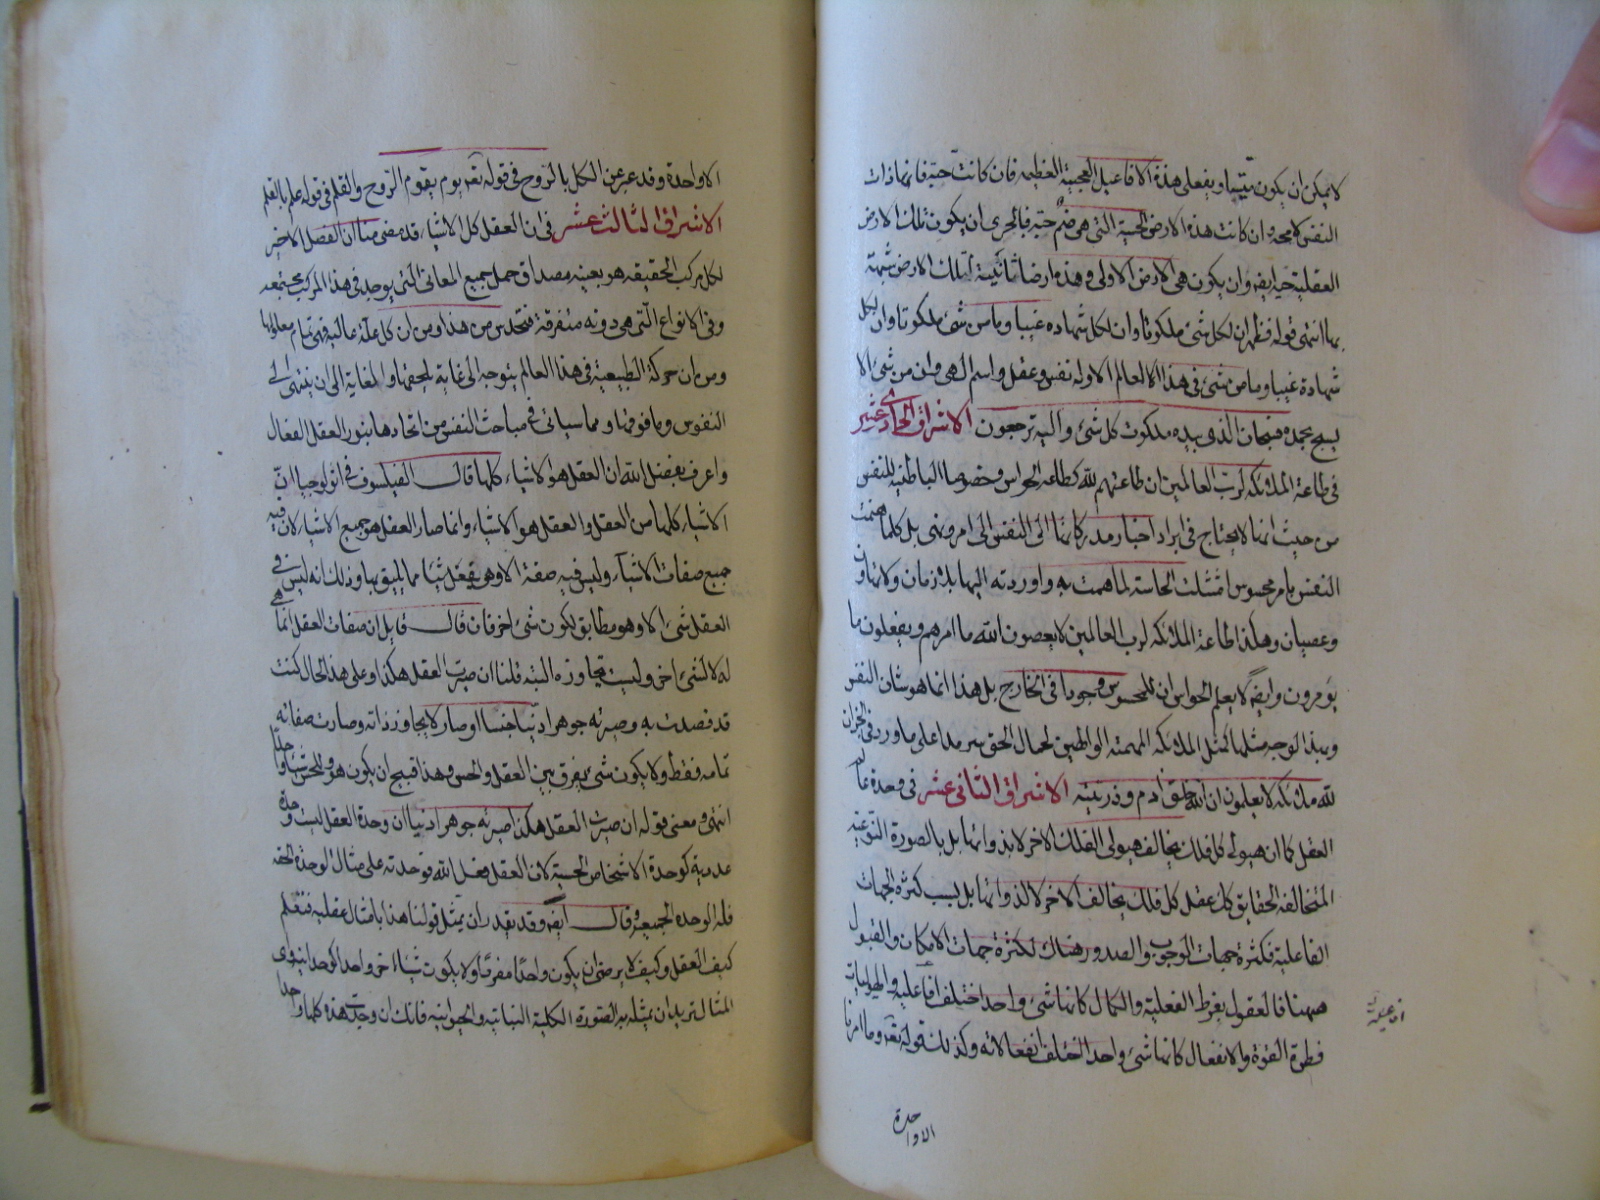 لا يمكن ان يكون ميتة ويفعل هذه الافاعيل العجيبة العظيمة فان كانت حية فانها ذات
النفس لا محة وان كانت هذه الارض الحسية التي هي صنم حية فبالحرى ان يكون تلك الارض
العقلية حية ايضه وان يكون هي الارض الاولى وهذه ارضا ثانية لتلك الارض شبيهة
بها انتهى قوله فظهر ان لكل شئ ملكوتا وان لكل شهادة غيبا وما من شئ ملكوتا وان لكل
شهادة غيبا وما من شئ في هذا العالم الا وله نفس وعقل واسم الهى وان من شئ الا
يسبح بحمده فسبحان الذى بيده ملكوت كل شئ واليه ترجعون الاشراق الحادى عشر
في طاعة الملائكه لرب العالمين ان طاعتهم لله كطاعة الحواس وخصوصا الباطنية للنفس
من حيث انها لا يحتاج في ايراد اخبار مدركاتها الى النفس الى امر ونهى بل كلما همت
النفس بامر محسوس امتثلت الحاسة لما همت به واوردته اليها بلا زمان ولا تهاون
وعصيان وهكذا طاعة الملائكه لرب العالمين لا يعصون الله ما امرهم ويفعلون ما
يؤمرون وايضه لا يعلم الحواس ان للمحسوس وجودا في الخارج بل هذا انما هو شان النفس
وبهذا الوجه مثلها كمثل الملائكه المهيمة الوالهين لجمال الحق سرمدا على ما ورد في الخبر ان
لله ملائكه لا يعلمون ان الله خلق ادم وذريته الاشراق الثاني عشر في وحدة عالم
العقل كما ان هيولى كل فلك يخالف هيولى الفلك الاخر لا بذواتها بل بالصورة النوعية
المتخالفه الحقايق كل عقل كل فلك يخالف الاخر لا لذواتها بل بسبب كثرة الجهات
الفاعلية فكثرة جهات الوجوب والصدور هناك لكثرة جهات الامكان والقبول
ههنا فالعقول بفرط الفعلية والكمال كانها شئ واحد اختلف افاعليه والهيوليات
لفرط القوة والانفعال كانها شئ واحد اختلف انفعالاته وكذلك قوله تعه وما امرنا
الا واحدة
الا واحدة وقد عبر عن الكل بالروح في قوله تعه يوم يقوم الروح والقلم في قوله علم بالقلم
الاشراق الثالث عشر في ان العقل كل الاشياء قد مضى منا ان الفصل الاخير
لكل مركب الحقيقه هو بعينه مصداق حمل جميع المعاني التي يوجد في هذا المركب مجتمعه
وفي الانواع التي هي دونه متفرقة فتحدس من هذا ومن ان كل علة عالية فهي تمام معلولها
ومن ان حركة الطبيعية في هذا العالم يتوجه الى غاية يلحقها وللغاية الى ان ينتهى الى
النفوس وما فوقها ومما سياتى في مباحث النفس من اتحادها بنور العقل الفعال
واعرف بفضل الله ان العقل هو الاشياء كلها قال الفيلسوف في اثولوجيا ان
الاشياء كلها من العقل والعقل هو الاشياء وانما صار العقل هو جميع الاشياء لان فيه
جميع صفات الاشياء وليس فيه صفة الا وهي يفعل شيئا مما يليق بها وذلك انه ليس في
العقل شئ الا وهو مطابق لكون شئ اخر فان قال قايل ان صفات العقل انما هي
له لا لشئ اخر وليست يتجاوزه البته قلنا ان صيرت العقل هكذا وعلى هذا الحال كنت
قد قصدت به وصيرته جوهرا دنيا جنسا ارضيا اذ صار لا يجاوز ذاته وصارت صفاته
تمامه فقط ولا يكون شئ يفرق بين العقل والحس وهذا قبيح ان يكون هو والحس شيئا واحدا
انتهى ومعنى قوله ان صيرت العقل هكذا صيرته جوهرا دنيا ان وحدة العقل ليست وحدة
عددية كوحدة الاشخاص الحسية لان العقل فعل الله فوحدته على مثال الوحدة الحقه
فله الوحده الجمعية وقال ايضه وقد يقدر ان يمثل قولنا هذا بامثال عقلية فنعلم
كيف العقل وكيف لا يرضى ان يكون واحدا مفردا ولا يكون شيئا اخر واحد كوحدانيته وى
المثال نريد ان يمثله به الصورة الكلية النباتيه والحيوانيه فانك ان وجدت هذه كلها واحدا